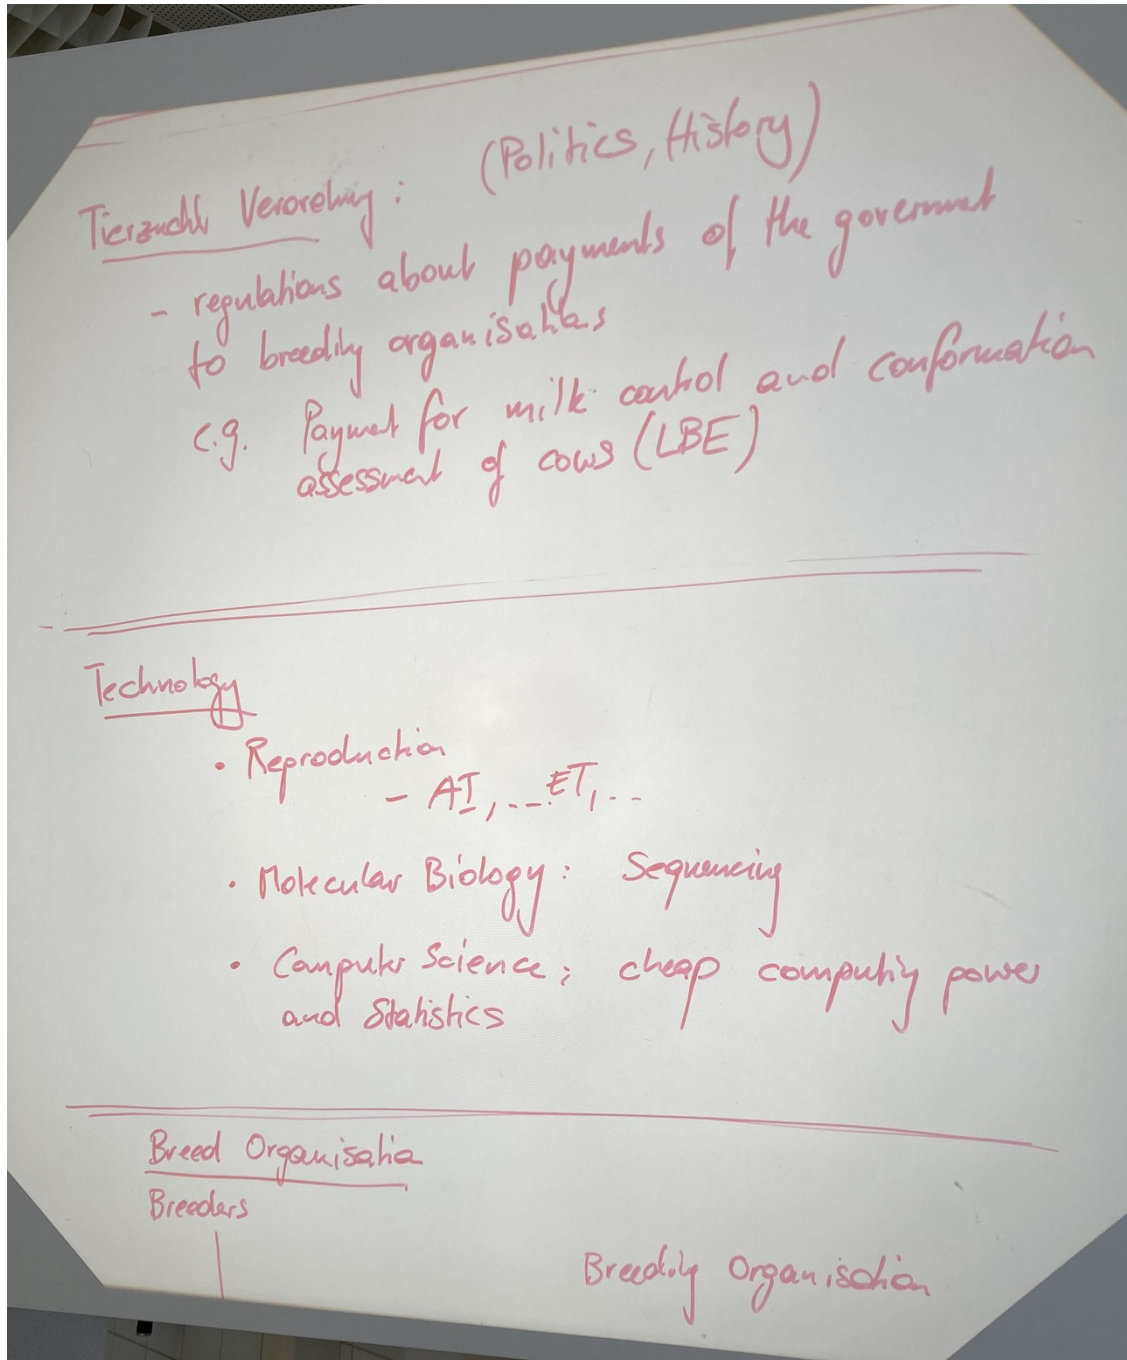 (Politics, History)
Tierzucht Verordnung:
- regulations about payments of the government
to breeding organisations
e.g. Payment for milk control and conformation
assessment of cows (LBE)
Technology
• Reproduction
- AI, ... ET, ...
• Molecular Biology: Sequencing
• Computer Science; cheap computing power
and Statistics
Breed Organisation
Breeders
Breeding Organisation